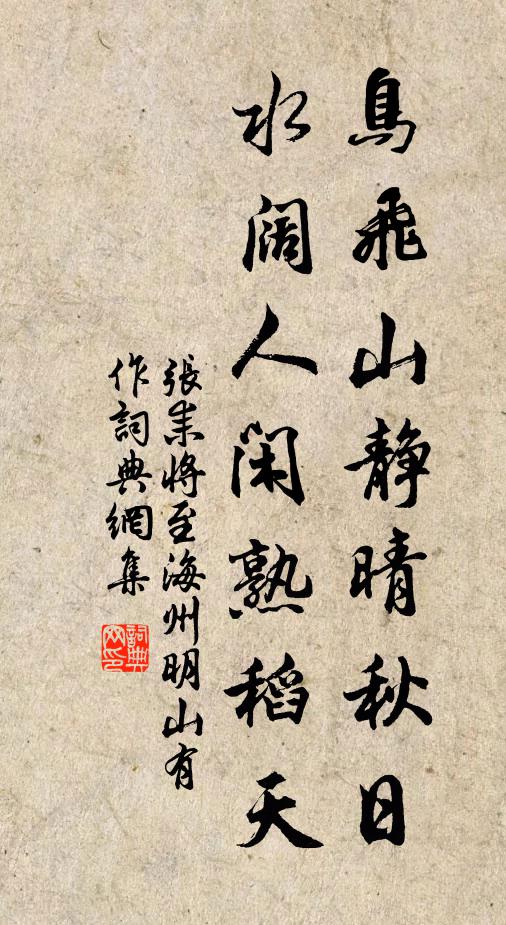 鳥飛山静晴秋日
水闊人閑熟稻天
張耒將至海州明山有
作詞典網集
詞典
网印